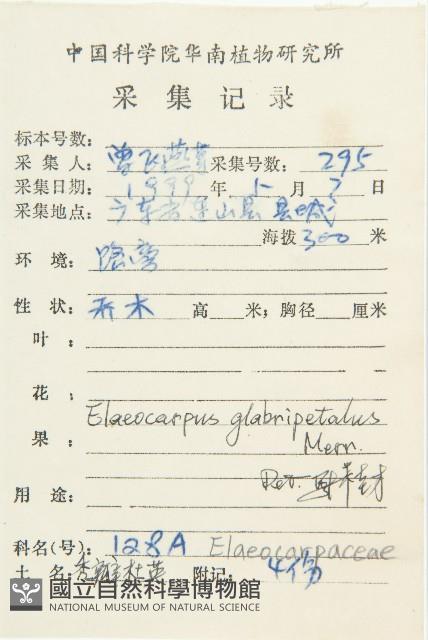 中国科学院华南植物研究所
采集记录
标本号数:
采集人: 曾飞燕 采集号数: 295
采集日期: 1999年 月 7 日
采集地点: 广东省连山县 县城
海拔 300 米
环境: 路旁
性状: 乔木 高 米; 胸径 厘米
叶:
花:
Elaeocarpus glabripetalus
果: Merr.
Det.
用途:
科名(号): 128A Elaeocarpaceae
土名: 秃瓣杜英 附记: 4份
國立自然科學博物館
NATIONAL MUSEUM OF NATURAL SCIENCE